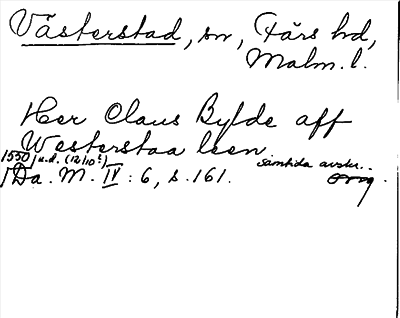 Västerstad, sn, Färs hd,
Malm. l.
Her Claus Bylde aff
Westerstaa leen
1550 u.d. (12/10?) samtida avskr.
Da. M. IV: 6, s. 161. orig.